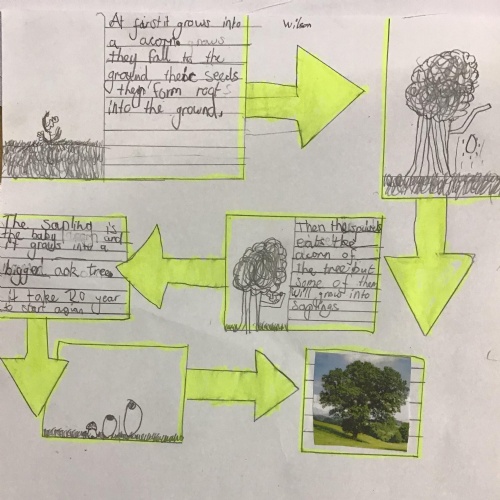 At first it grows into
a acorn grows
they fall to the
ground, their seeds
then form roots
into the ground,
Wilson
Then the squirrels
eats the
acorn of
the tree but
some of them
will grow into
saplings
The sapling is
the baby and
it grows into a
bigger oak tree
it take 20 year
to start again